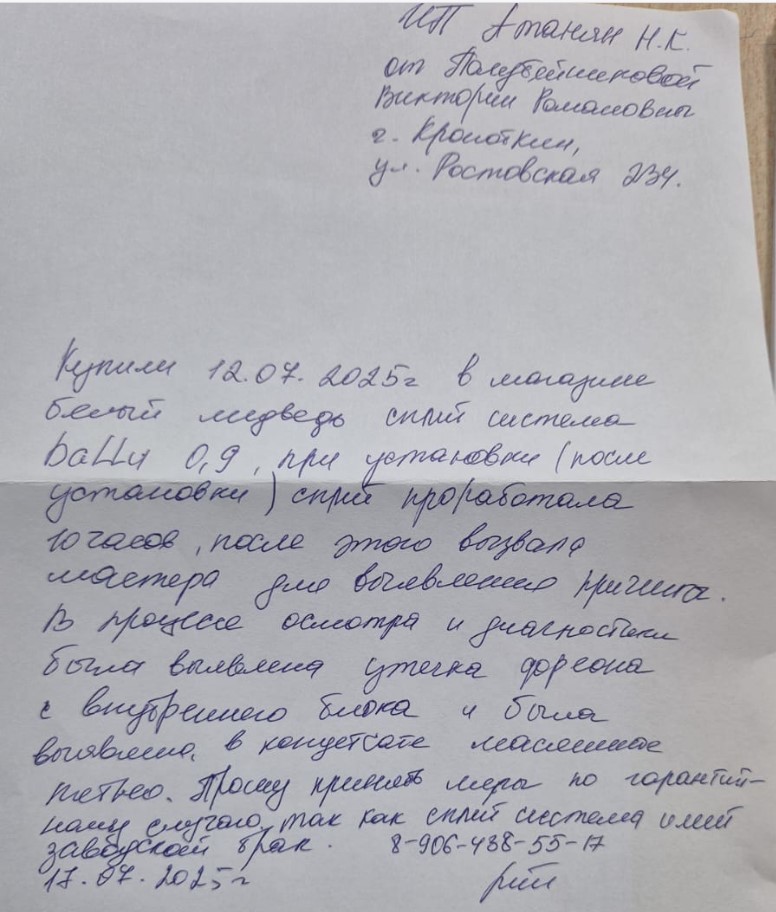 ИП Атанян Н.К.
от Полубейниковой
Виктории Романовны
г. Кропоткин,
ул. Ростовская 234.
Купили 12.07.2025г в магазине
белый медведь сплит система
Ballu 0,9, при установки (после
установки) сплит проработала
10 часов, после этого вызвала
мастера для выявление причины.
В процессе осмотра и диагностики
была выявлена утечка фореона
с внутреннего блока и была
выявлено, в конденсате маслянное
пятно. Прошу принять меры по гарантий-
ному случаю, так как сплит система имеет
заводской брак. 8-906-438-55-17
17.07.2025г